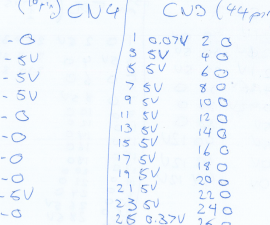 (10pin) CN4
- 0
- 5V
- 5V
- 5V
- 0
- 0
- 0
- 0
- 5V
- 0
CN3 (44pin
1 0.07V 2 0
3 5V 4 0
5 5V 6 0
7 5V 8 0
9 5V 10 0
11 5V 12 0
13 5V 14 0
15 5V 16 0
17 5V 18 0
19 5V 20 0
21 5V 22 0
23 5V 24 0
25 0.37V 26 0